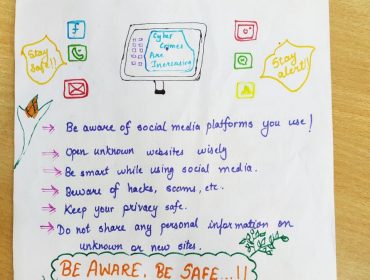 Stay
Safe!!
Cyber
Crimes
Are
Increasing
Stay
alert!!
Be aware of social media platforms you use!
Open unknown websites wisely
Be smart while using social media.
Beware of hacks, scams, etc.
Keep your privacy safe.
Do not share any personal information on
unknown or new sites.
BE AWARE, BE SAFE...!!